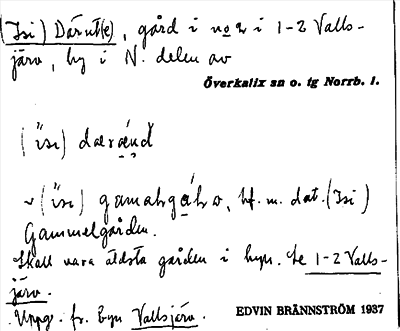 (Isi) Därut(e), gård i no 2 i 1-2 Valls-
järv, by i N. delen av
Överkalix sn o. tg Norrb. l.
(i̋si) dærænd
~ (i̋si) gamalgálo, bf. m. dat. (Isi)
Gammelgården.
Skall vara äldsta gården i byn. Se 1-2 Valls-
järv.
Uppg. fr. byn Vallsjärv.
EDVIN BRÄNNSTRÖM 1937